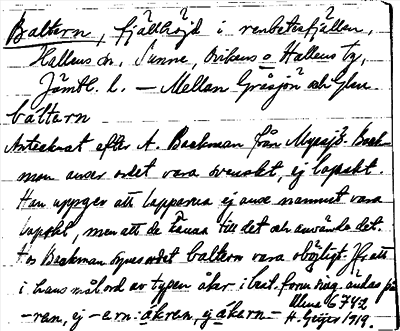 Baltern, fjällhöjd i renbetesfjällen,
Hallens sn, Sunne, Ovikens o Hallens tg,
Jämtl. l. — Mellan Gråsjön och Glen
baltern
Antecknat efter A. Backman från Myssjö. Back-
man anser ordet vara svenskt, ej lapskt.
Han uppger att lapparna ej anse namnet vara
lapskt, men att de känna till det och använda det.
Hos Backman synes ordet baltern vara oböjligt. Jfr, att
i hans mål ord av typen åker i best. form sing. ändas på
-ren, ej -ern: åkren, ej åkern —
Ullene 6742
H. Geijer 1919.